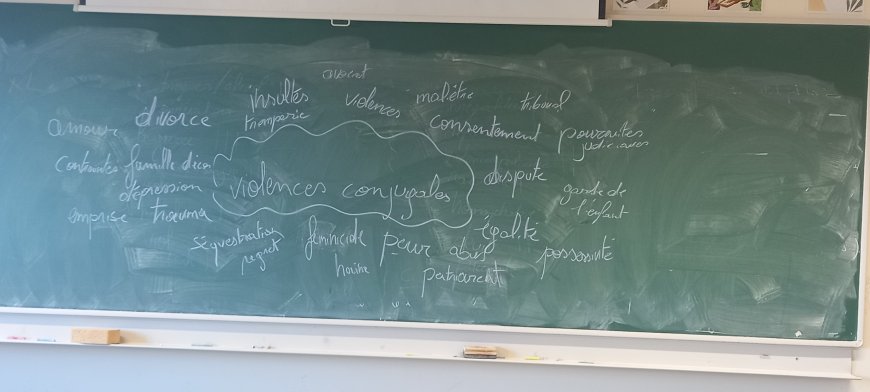 avocat
insultes violences mal être tribunal
amour divorce tromperie consentement poursuites
judiciaires
contraintes famille dispute
dépression violences conjugales garde de
l'enfant
emprise trauma
séquestration féminicide peur abus égalité possessivité
regret haine patriarcat